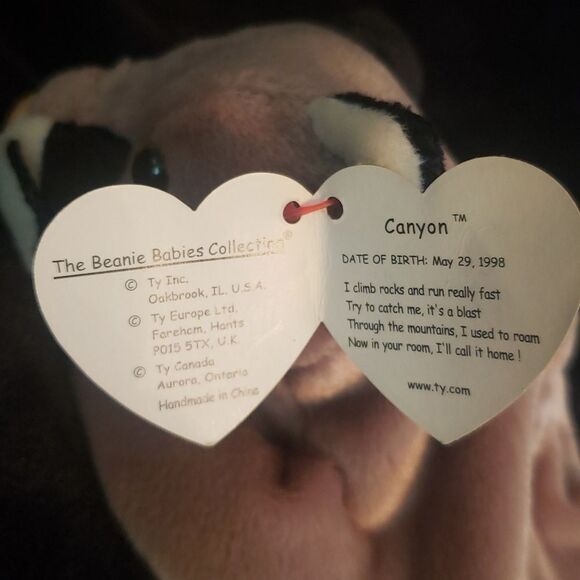 The Beanie Babies Collection®
© Ty Inc.
Oakbrook, IL. U.S.A.
© Ty Europe Ltd.
Fareham, Hants
PO15 5TX, U.K.
© Ty Canada
Aurora, Ontario
Handmade in China
Canyon ™
DATE OF BIRTH: May 29, 1998
I climb rocks and run really fast
Try to catch me, it's a blast
Through the mountains, I used to roam
Now in your room, I'll call it home !
www.ty.com